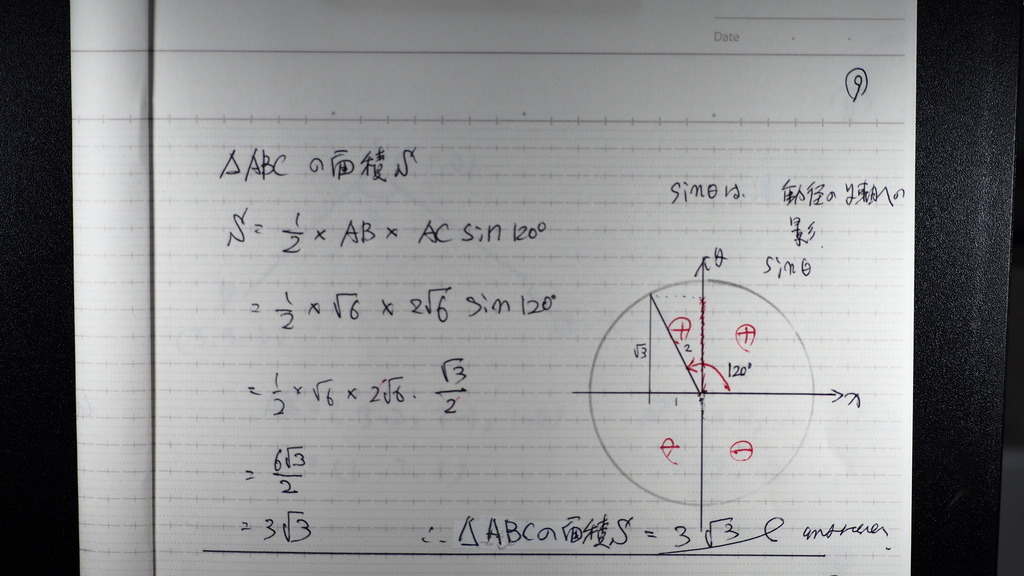 Date
⑨
△ABC の面積 S
S = 1/2 × AB × AC sin 120°
= 1/2 × √6 × 2√6 sin 120°
= 1/2 × √6 × 2√6 · √3/2
= 6√3/2
= 3√3
∴ △ABCの面積S = 3√3 answer
sinθは 動径のy軸への
影
sinθ
⊕ ⊕
√3 2 120°
1 x
⊖ ⊖